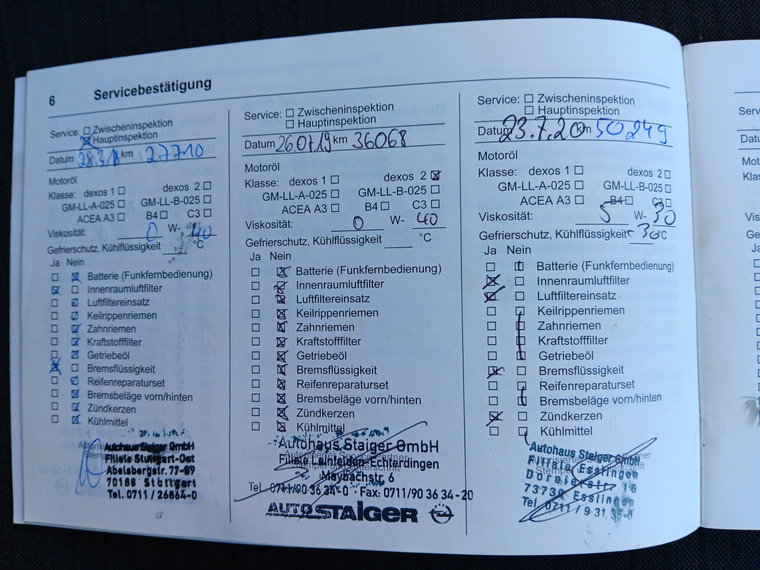 6 Servicebestätigung
Service: Zwischeninspektion
Hauptinspektion
Datum km 27710
Motoröl
Klasse: dexos 1 dexos 2
GM-LL-A-025 GM-LL-B-025
ACEA A3 B4 C3
Viskosität: 0 W- 40
Gefrierschutz, Kühlflüssigkeit °C
Ja Nein
Batterie (Funkfernbedienung)
Innenraumluftfilter
Luftfiltereinsatz
Keilrippenriemen
Zahnriemen
Kraftstofffilter
Getriebeöl
Bremsflüssigkeit
Reifenreparaturset
Bremsbeläge vorn/hinten
Zündkerzen
Kühlmittel
Autohaus Staiger GmbH
Filiale Stuttgart-Ost
Abelsbergstr. 77-89
70188 Stuttgart
Tel. 0711 / 26864-0
Service: Zwischeninspektion
Hauptinspektion
Datum 26.07.19 km 36068
Motoröl
Klasse: dexos 1 dexos 2
GM-LL-A-025 GM-LL-B-025
ACEA A3 B4 C3
Viskosität: 0 W- 40
Gefrierschutz, Kühlflüssigkeit °C
Ja Nein
Batterie (Funkfernbedienung)
Innenraumluftfilter
Luftfiltereinsatz
Keilrippenriemen
Zahnriemen
Kraftstofffilter
Getriebeöl
Bremsflüssigkeit
Reifenreparaturset
Bremsbeläge vorn/hinten
Zündkerzen
Kühlmittel
Autohaus Staiger GmbH
Filiale Leinfelden-Echterdingen
Maybachstr. 6
Tel. 0711/90 36 34-0 Fax: 0711/90 36 34-20
AUTO STAIGER
Service: Zwischeninspektion
Hauptinspektion
Datum 23.7.20 km 50.249
Motoröl
Klasse: dexos 1 dexos 2
GM-LL-A-025 GM-LL-B-025
ACEA A3 B4 C3
Viskosität: 5 W- 30
Gefrierschutz, Kühlflüssigkeit -30 °C
Ja Nein
Batterie (Funkfernbedienung)
Innenraumluftfilter
Luftfiltereinsatz
Keilrippenriemen
Zahnriemen
Kraftstofffilter
Getriebeöl
Bremsflüssigkeit
Reifenreparaturset
Bremsbeläge vorn/hinten
Zündkerzen
Kühlmittel
Autohaus Staiger GmbH
Filiale Esslingen
73730 Esslingen